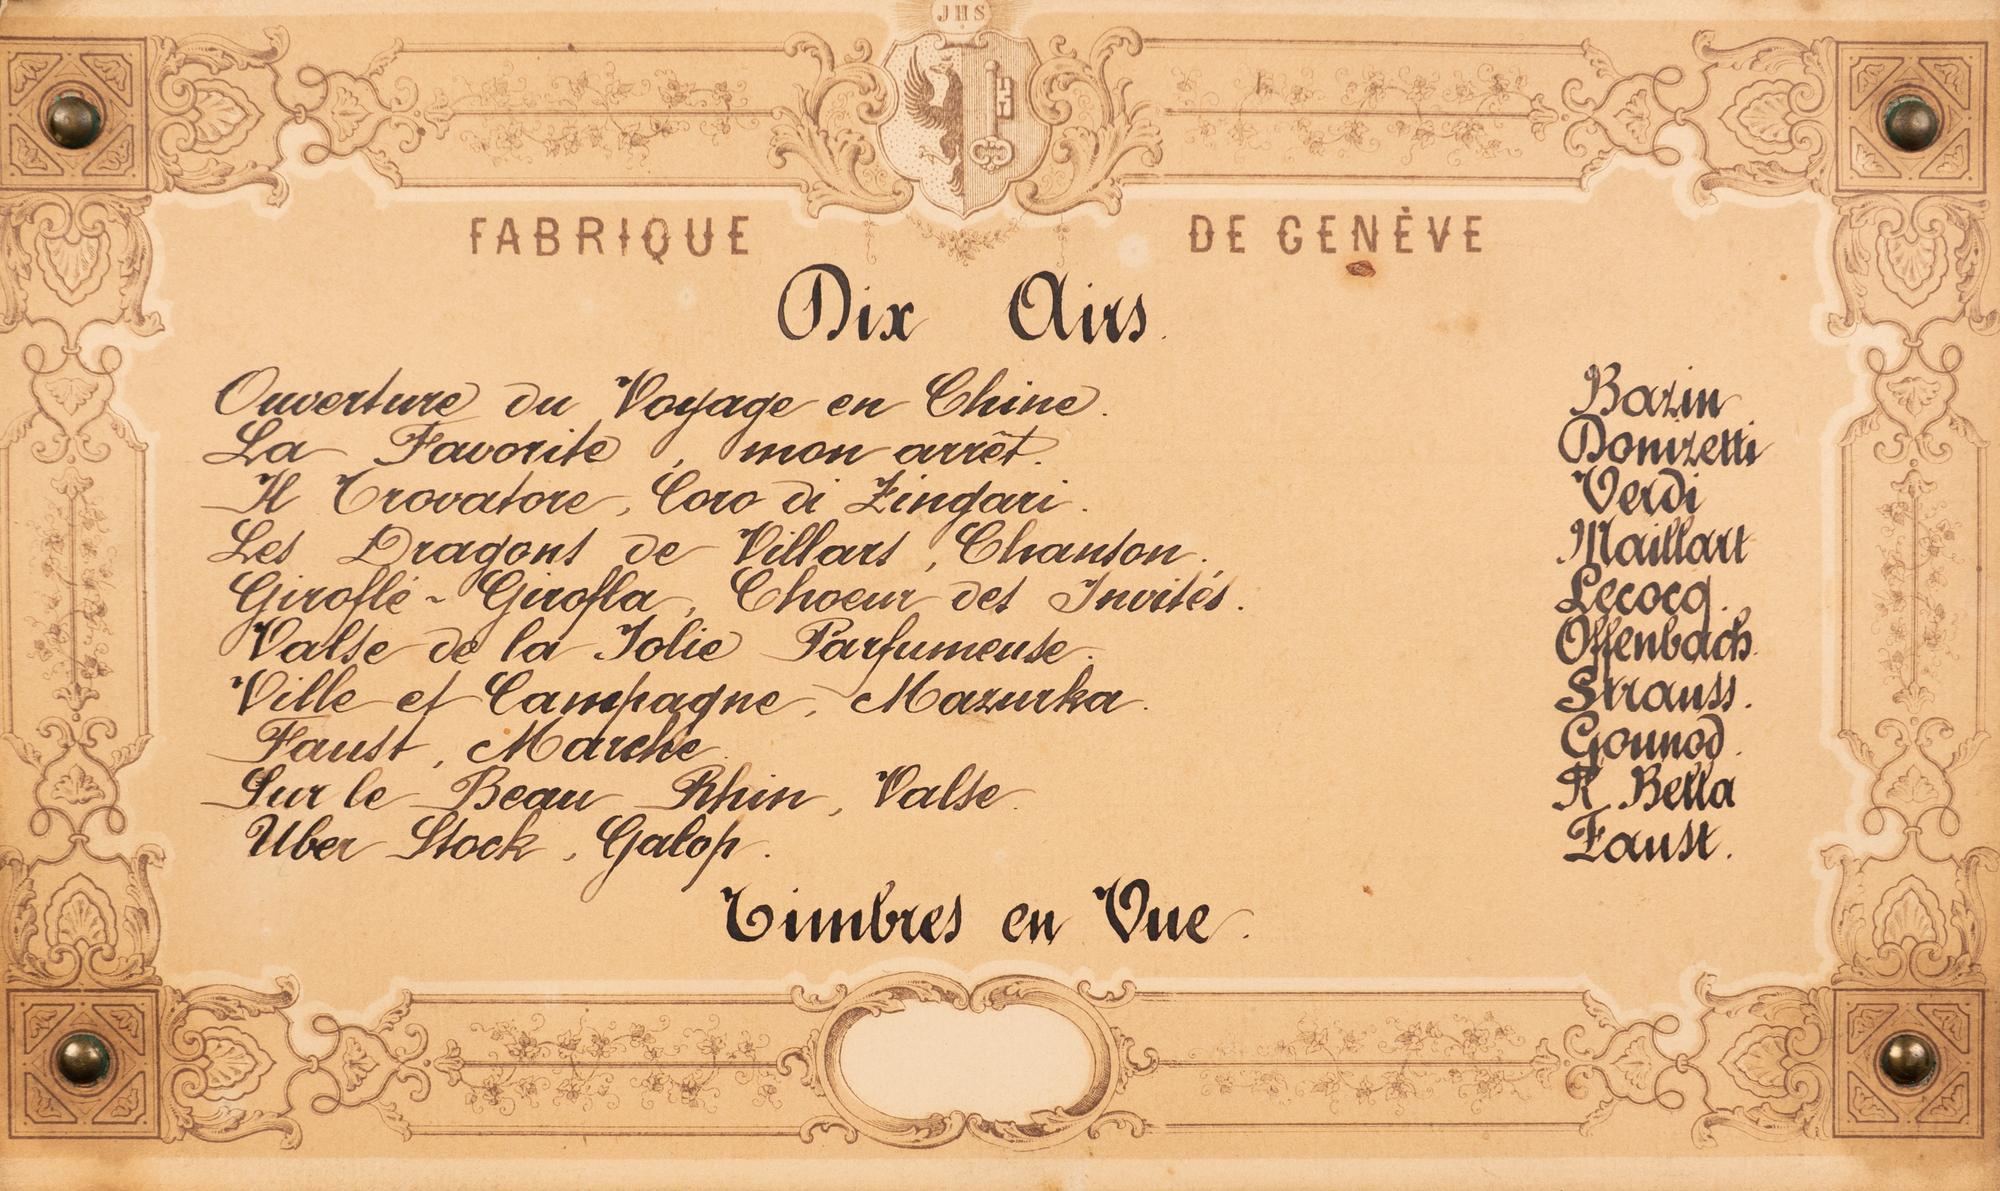 JHS
FABRIQUE DE GENÈVE
Dix Airs.
Ouverture du Voyage en Chine. Bazin
La Favorite, mon arrêt. Donizetti
Il Trovatore, Coro di Zingari. Verdi
Les Dragons de Villars, Chanson. Maillart
Giroflé-Girofla, Choeur des Invités. Lecocq.
Valse de la Jolie Parfumeuse. Offenbach.
Ville et Campagne, Mazurka. Strauss.
Faust, Marche. Gounod.
Sur le Beau Rhin, Valse. K. Bella
Uber Stock, Galop. Faust.
Timbres en Vue.